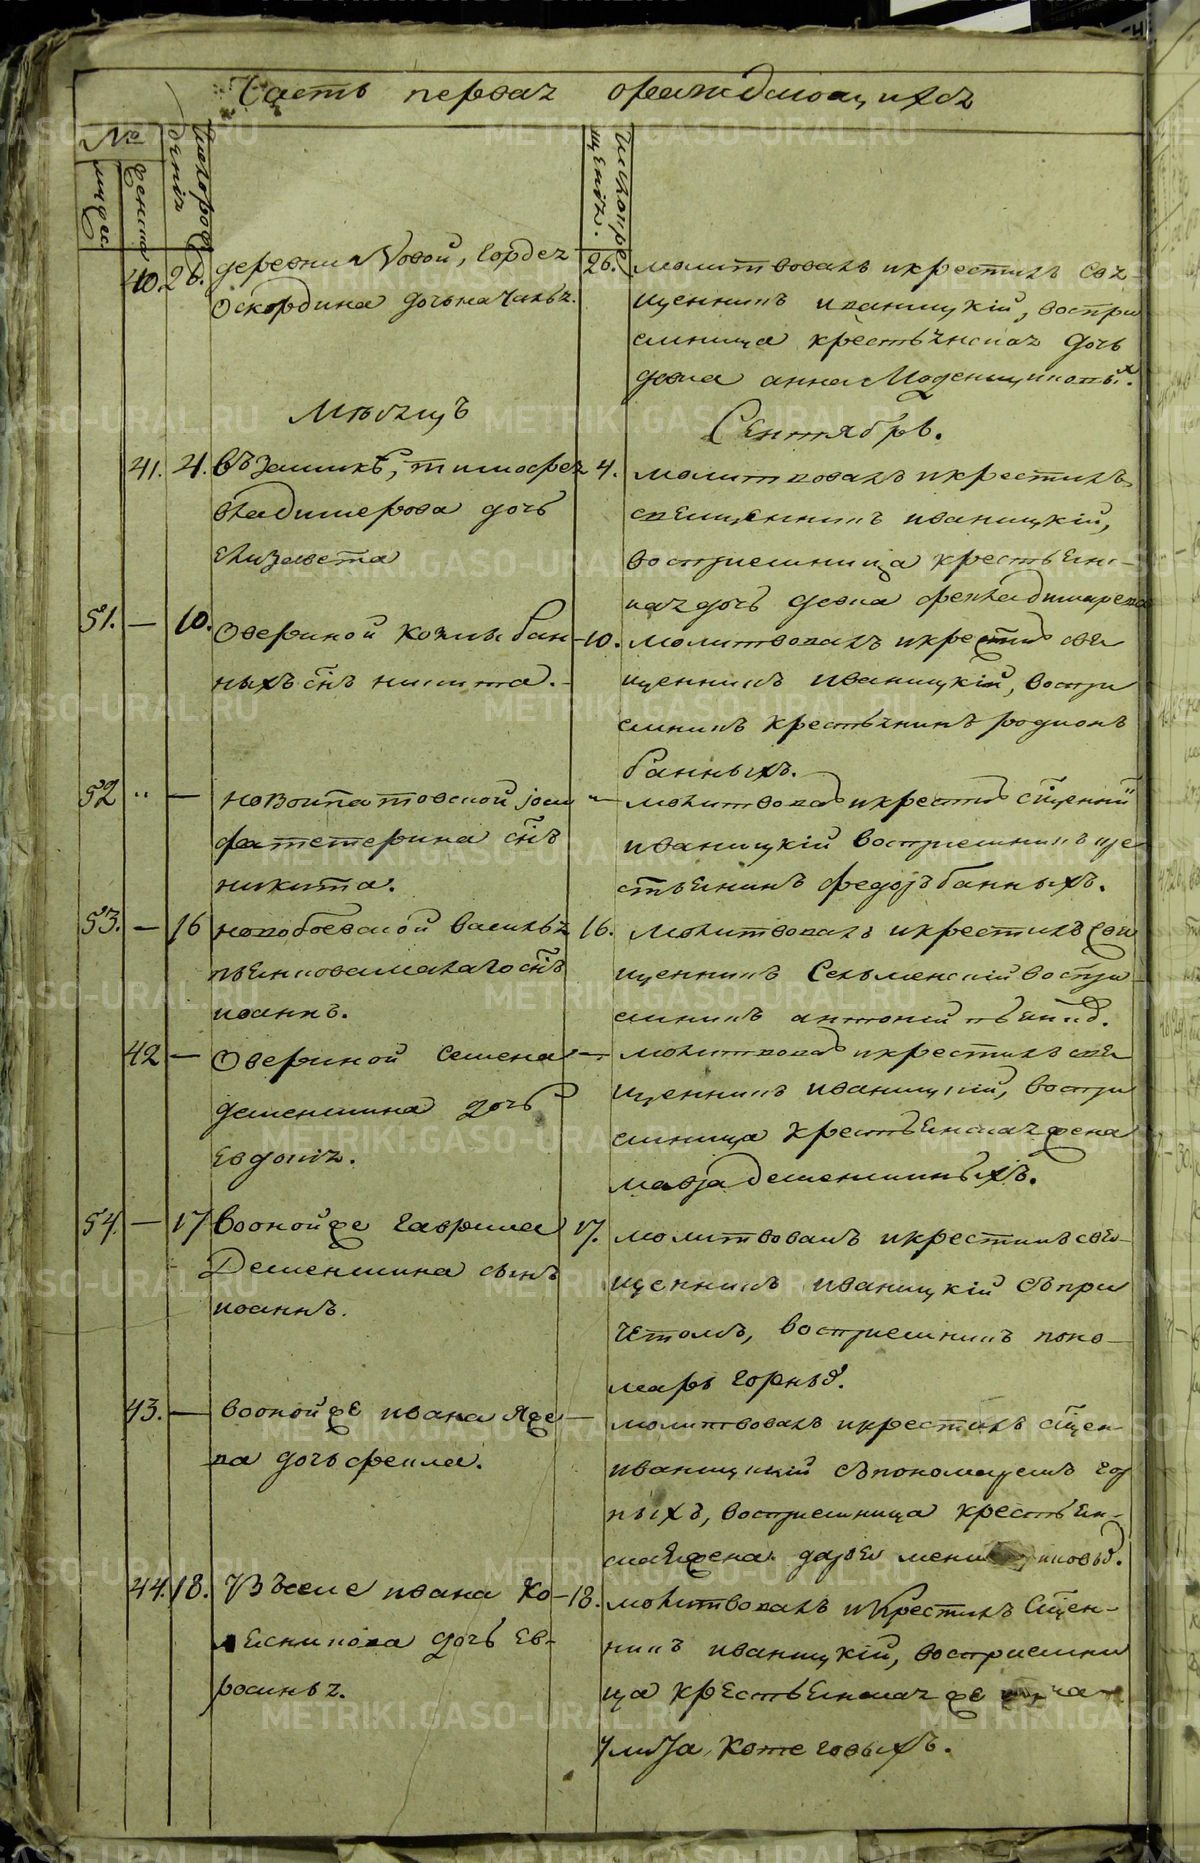 Часть первая ораждающихся
№
мужес.
женска
Числорождения
Числокрещения.
40. 26. деревни Новой, Гордея
Оскордина дочь наталья.
26. молитвовалъ икрестилъ свя-
щенникъ иваницкій, воспри
емница крестьянская дочь
девка анна
Мѣсяцъ Сентябрь.
41. 4. Въ Замикѣ, тимофея
владимерова дочь
Елизавета
4. молитвовалъ икрестилъ
священникъ иваницкій,
восприемница крестьян-
ская дочь девка
51. — 10. Озериной козмы бан-
ныхъ сн҃ъ никита.
10. молитвовалъ икрестилъ свя
щенникъ иваницкій, воспри
емникъ крестьянинъ родионъ
банныхъ.
52 „ —
сн҃ъ
никита.
молитвовалъ икрестилъ сщ҃енни
иваницкій восприемникъ кре
стьянинъ федоръ банныхъ.
53. — 16 василья
сн҃ъ
иоаннъ.
16. молитвовалъ икрестилъ свя
щенникъ Сельменскій воспри
емникъ антоній
42 — Озериной семена
деменшина дочь
Евдокія.
— молитвовалъ икрестилъ свя
щенникъ иваницкій, воспри
емница крестьянская жена
мавра деменшиныхъ.
54. — 17 Воонойже гаврила
Деменшина сынъ
иоаннъ.
17. молитвовалъ икрестилъ свя-
щенникъ иваницкій съпри
четомъ, восприемникъ поно-
марь горныхъ.
43. — воонойже ивана
дочь фекла.
— молитвовалъ икрестилъ сщ҃ен-
иваницкій съпономаремъ гор
ныхъ, восприемница крестьян-
скаяжена дарья
44. 18. Въселе ивана Ко-
лесникова дочь Ев-
росинья.
18. молитвовалъ икрестилъ Сщ҃ен-
никъ иваницкій, восприемни
ца крестьянская
улита
METRIKI.GASO-URAL.RU